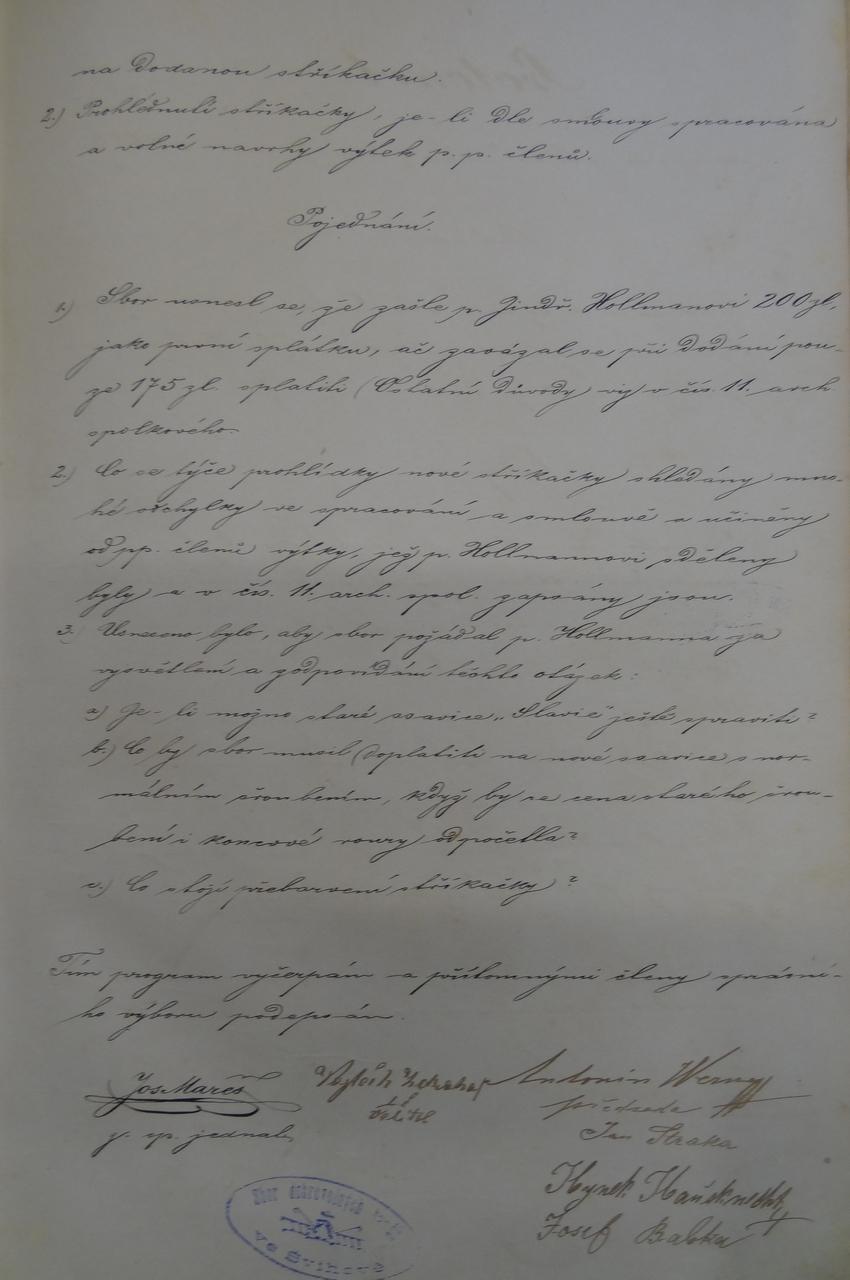 na dodanou stříkačku.
2.) Prohlédnutí stříkačky, je-li dle smlouvy spracována
a volné navrhy výtek p.p. členů.
Pojednání.
1.) Sbor usnesl se, že zašle p. Jindř. Hollmanovi 200 zl,
jako první splátku, ač zavázal se při dodání pou-
ze 175 zl. splatiti (Ostatní důvody viz v čís. 11. arch
spolkového.
2.) Co se týče prohlídky nové stříkačky shledány mno-
hé odchylky ve spracování a smlouvě a učiněny
od pp. členů výtky, jež p. Hollmannovi sděleny
byly a v čís. 11. arch. spol. zapsány jsou.
3. Usneseno bylo, aby sbor požádal p. Hollmanna za
vysvětlení a zodpovídání těchto otázek:
a) Je-li možno staré ssavice „Slavie" ještě spraviti?
b.) Co by sbor musil doplatiti na nové ssavice s nor-
málním šroubením, když by se cena starého šrou-
bení i koncové roury odpočetla?
c.) Co stojí přebarvení stříkačky?
Tím program vyčerpán a přítomnými členy správní-
ho výboru podepsán.
Jos. Mareš Vojtěch Antonín Werny
velitel předseda
j. sp. jednatel Jan Straka
Hynek Hausknecht
Josef Babka
Sbor dobrovolných
ve Švihově